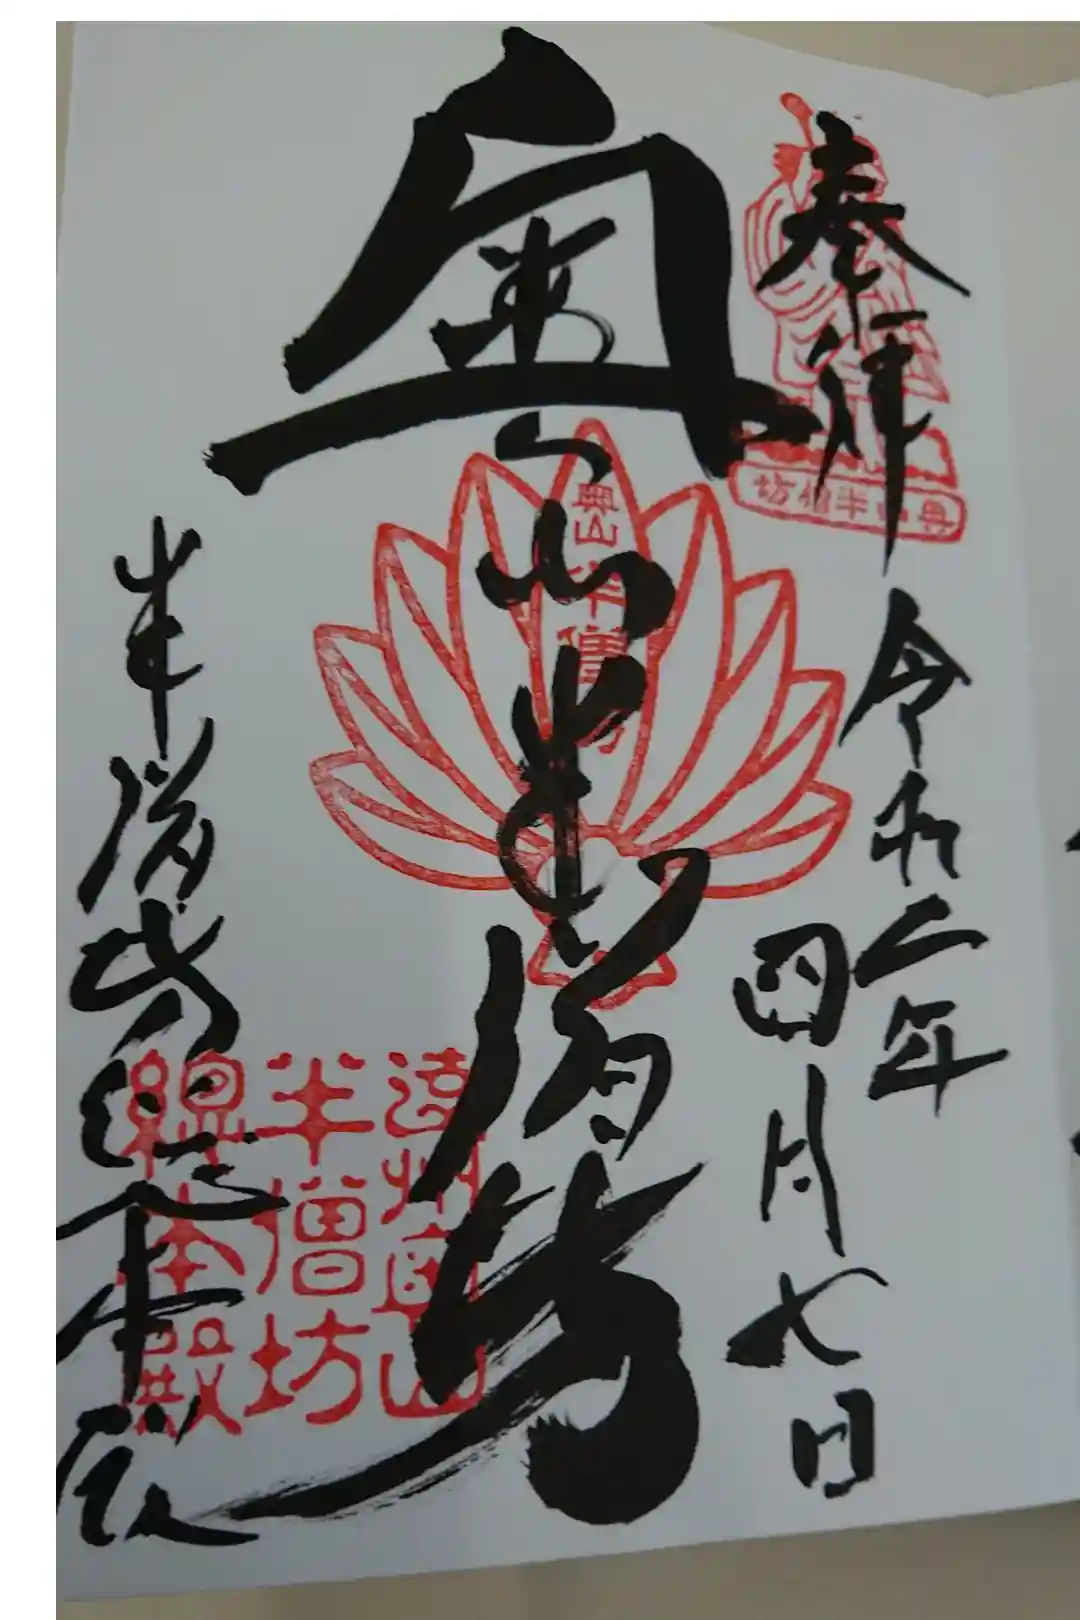 奉拝
令和二年
四月七日
奥山半僧坊
半僧坊総本殿
奥山半僧坊
奥山半僧坊
遠州奥山
半僧坊
總本殿